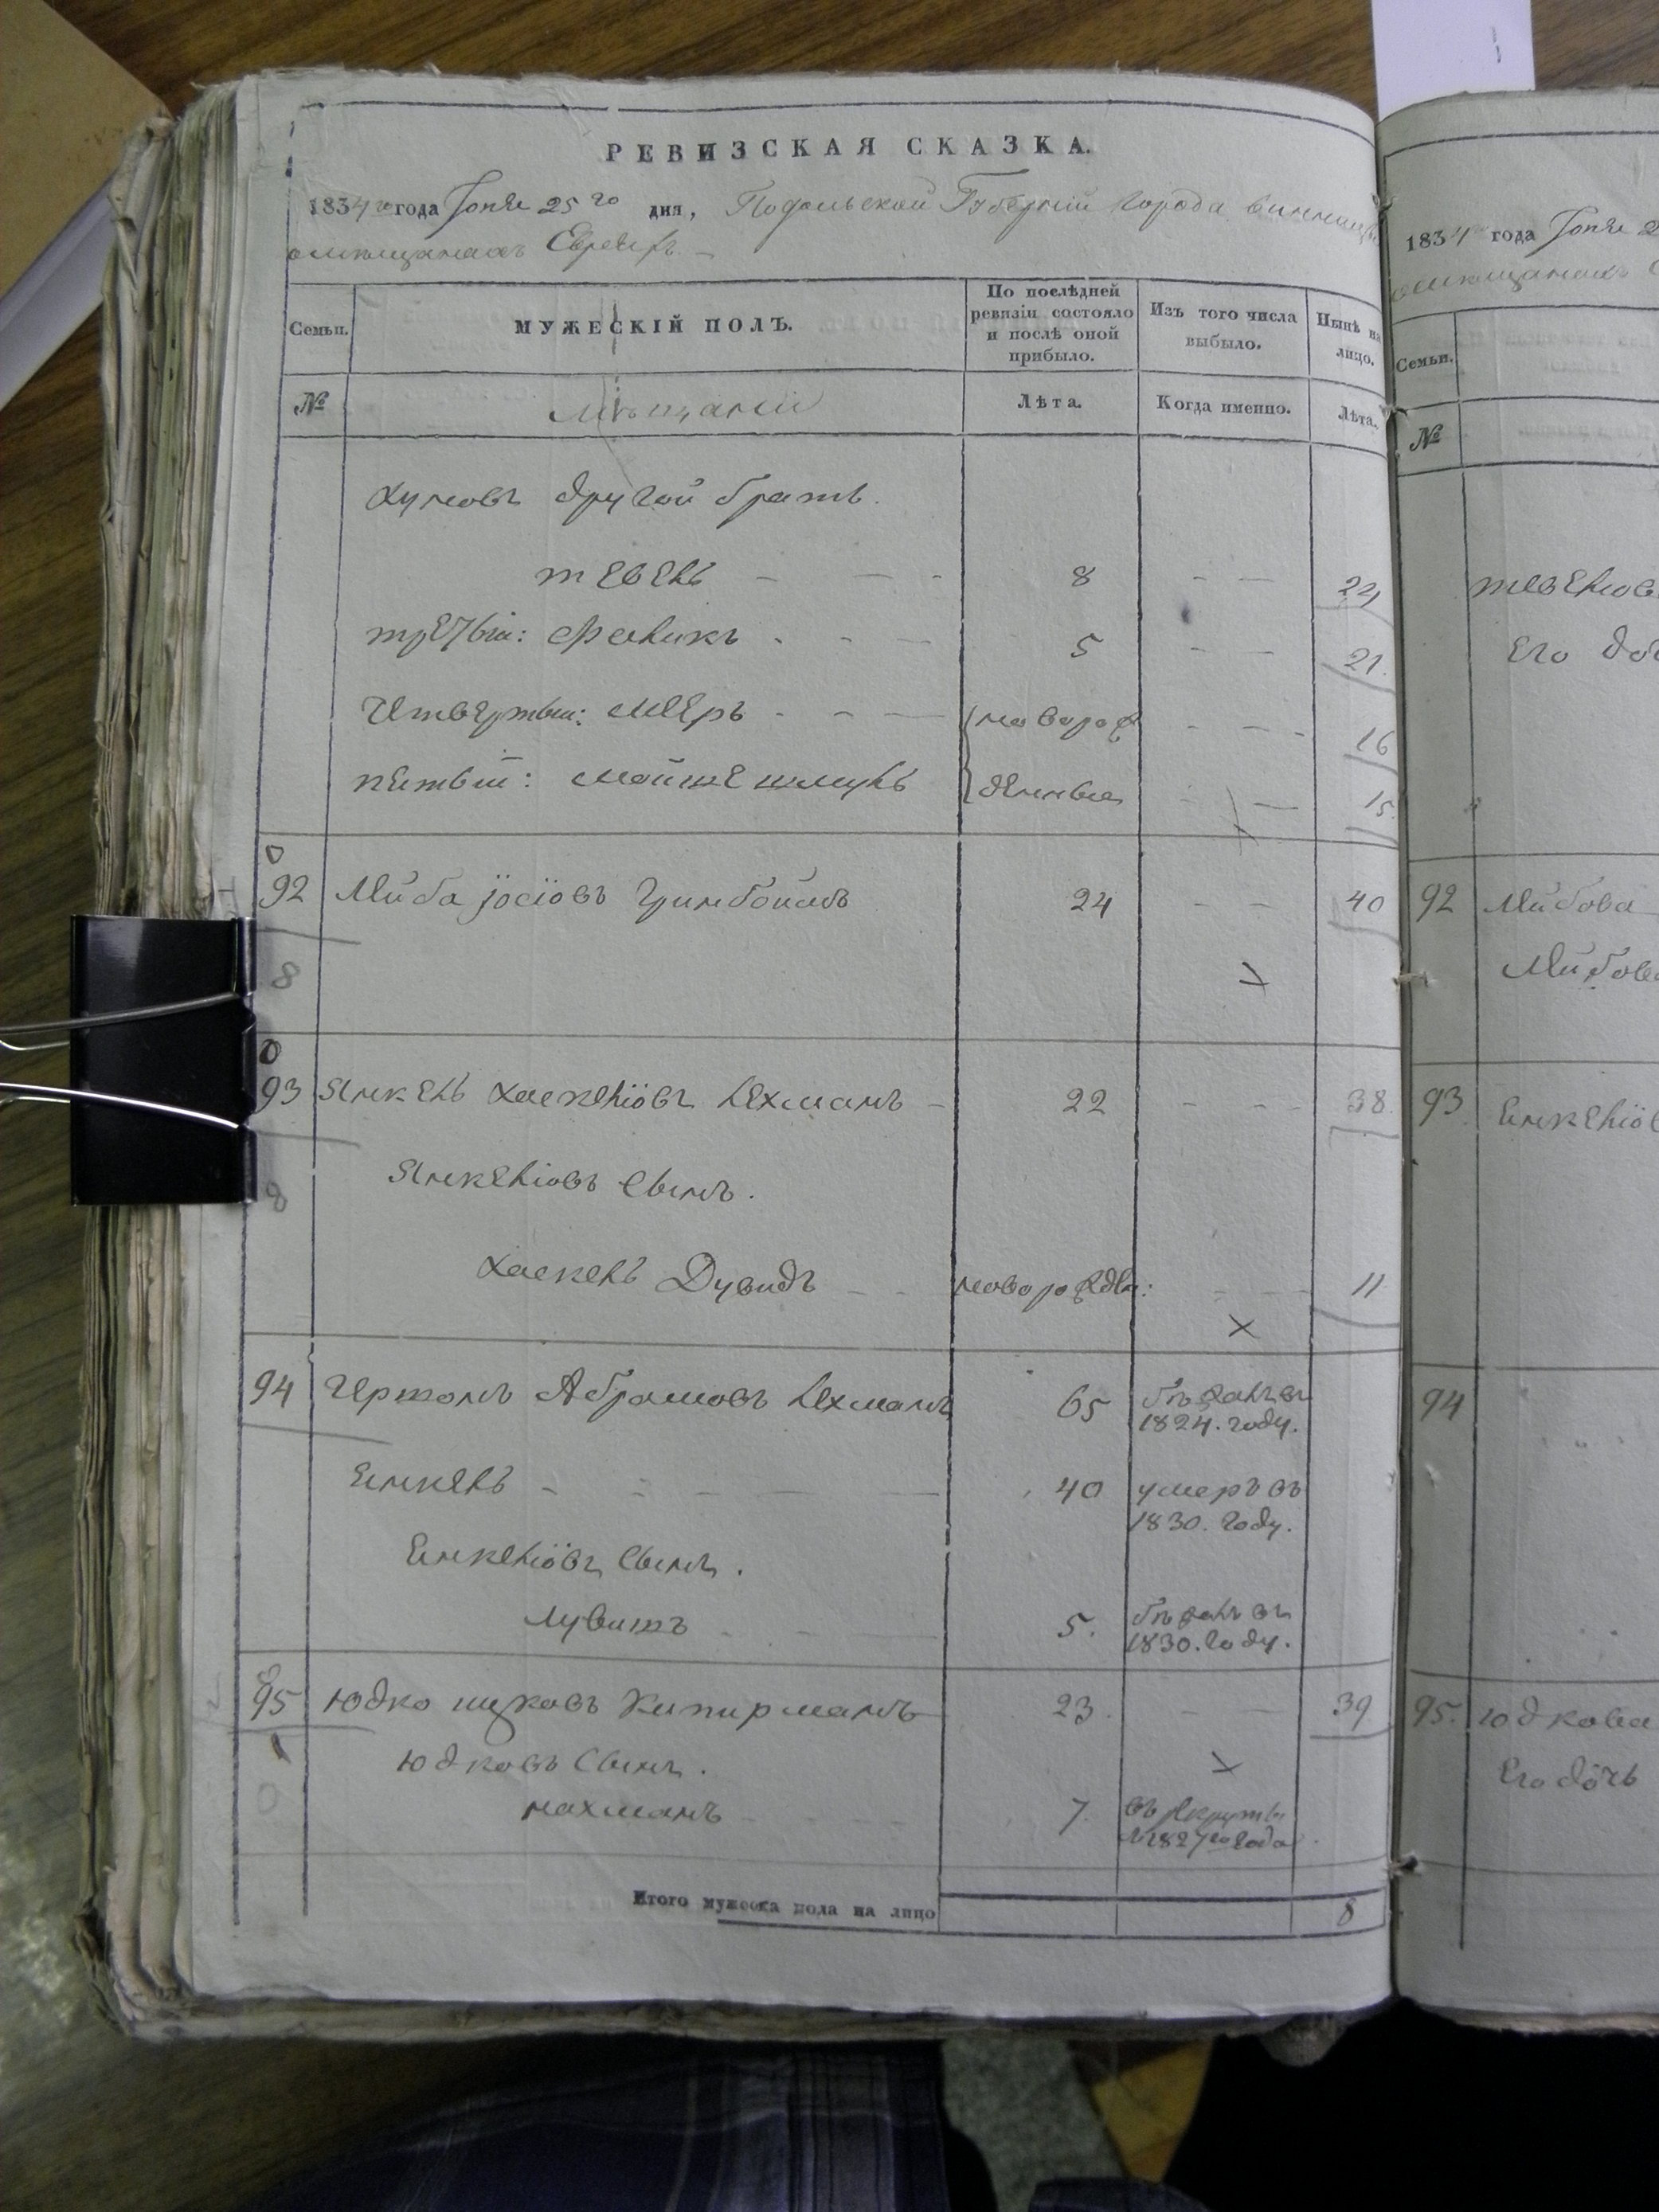 РЕВИЗСКАЯ СКАЗКА.
1834го года Іюня 25го дня, Подольской Губерніи города Винницы
о мѣщанахъ Евреяхъ
Семьи.
МУЖЕСКІЙ ПОЛЪ.
По послѣдней ревизіи состояло и послѣ оной прибыло.
Изъ того числа выбыло.
Нынѣ на лицо.
№
Мѣщане
Лѣта.
Когда именно.
Лѣта.
другой братъ.
тевель 8 24
третьій: Фаликъ 5 21
Четвертый: Мееръ новорож 16
пятый: Мойше шмуль денные 15
92 Лейба Іосіовъ Гринбоймъ 24 40
8
93 Янкель Хаскеліовъ Лехманъ 22 38
Янкеліовъ сынъ.
8
Хаскель Дувидъ новорожде: 11
94 Абрамовъ Лехманъ 65 бѣжалъ въ 1824. году.
Янкель 40 умеръ въ 1830. году.
Янкеліовъ сынъ.
5. бѣжалъ въ 1830. году.
95 Юдко Ицковъ 23 39
Юдковъ сынъ.
нахманъ 7. въ рекруты 1827го года
Итого мужеска пола на лицо 8
1834 года Іюня 2
о мѣщанахъ
Семьи.
№
Его доч
92 Лейбова
Лейбова
93 Янкеліов
94
95. Юдкова
Его дочь